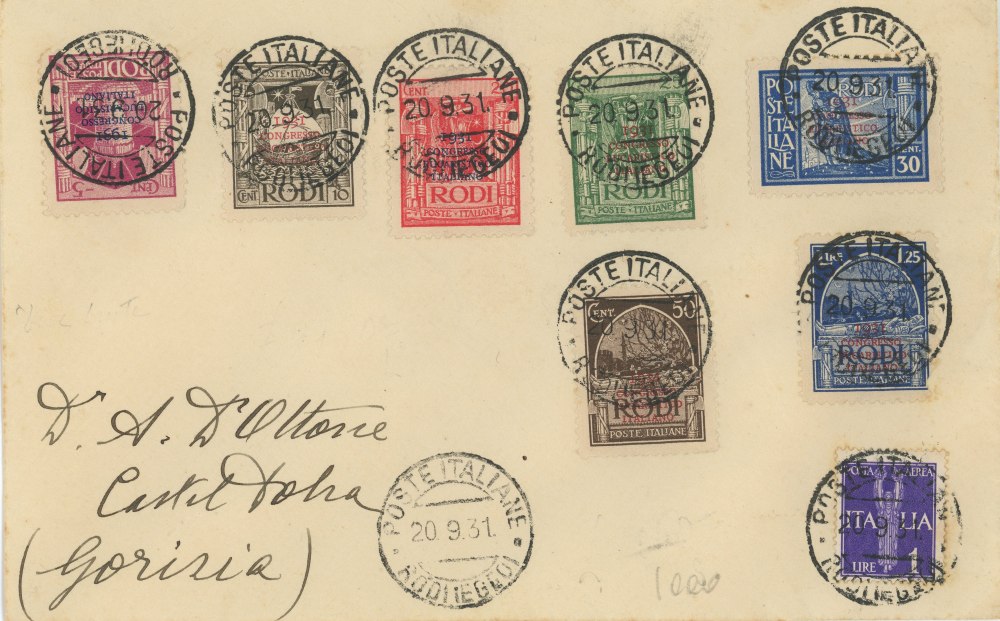 POSTE ITALIANE
20.9.31.
RODI (EGEO)
CENT. 5
POSTE ITALIANE
RODI
1931
CONGRESSO
EUCARISTICO
ITALIANO
POSTE ITALIANE
20.9.31.
RODI (EGEO)
POSTE ITALIANE
1931
CONGRESSO
CENT. RODI 10
POSTE ITALIANE
20.9.31.
RODI (EGEO)
CENT.
1931
CONGRESSO
EUCARISTICO
ITALIANO
RODI
POSTE ITALIANE
POSTE ITALIANE
20.9.31.
RODI (EGEO)
1931
CONGRESSO
RODI
POSTE ITALIANE
POSTE ITALIANE
20.9.31
RODI (EGEO)
POSTE ITALIANE
1931
CENT. 30
POSTE ITALIANE
20.9.31.
RODI (EGEO)
CENT. 50
1931
CONGRESSO
RODI
POSTE ITALIANE
POSTE ITALIANE
20.9.31
LIRE 1,25
1931
CONGRESSO
EUCARISTICO
ITALIANO
RODI
POSTE ITALIANE
Dr. A. D'Ottone
Castel Dobra
(Gorizia)
POSTE ITALIANE
20.9.31.
RODI (EGEO)
POSTE ITALIANE
20.9.31
RODI (EGEO)
POSTA AEREA
ITALIA
LIRE 1
1000